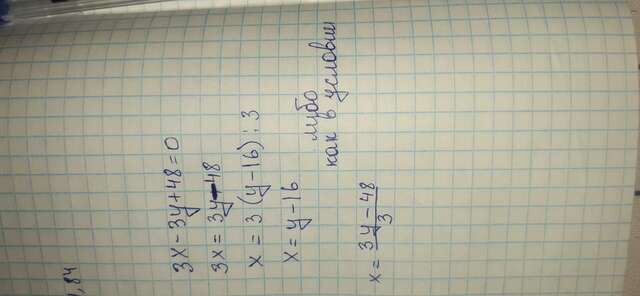 1,84
3x - 3y + 48 = 0
3x = 3y - 48
x = 3 (y - 16) : 3
x = y - 16
либо
как в условии
x = \frac{3y - 48}{3}